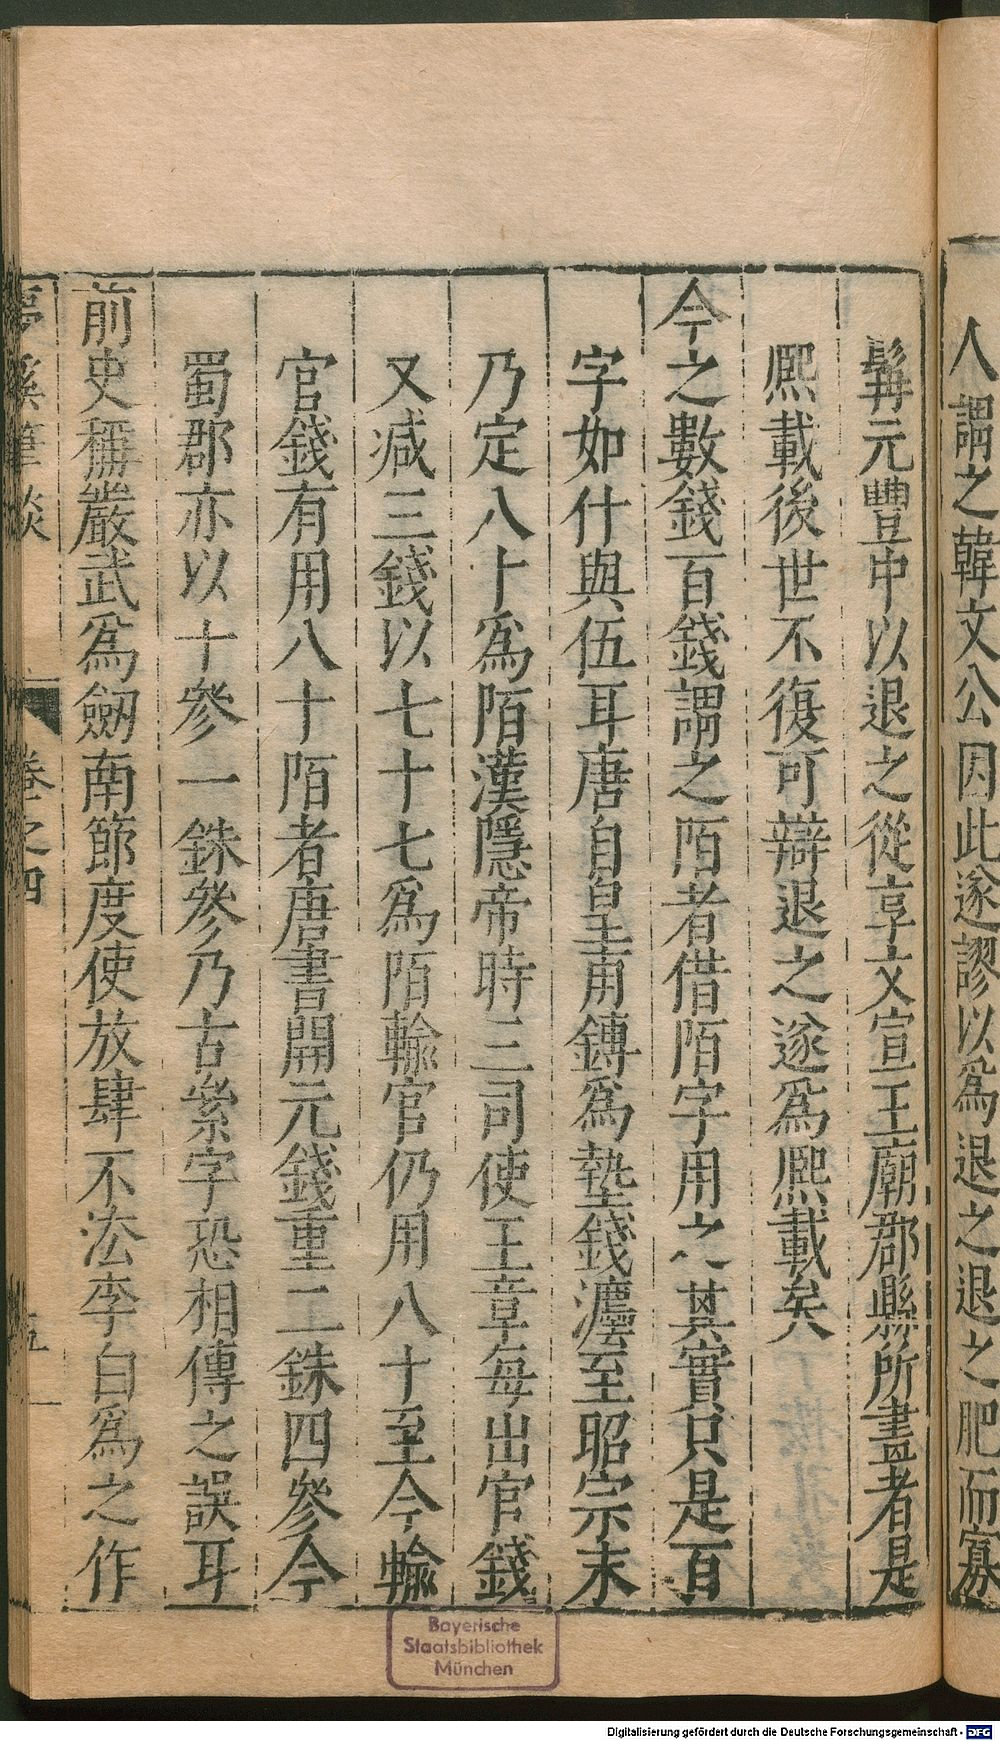 人謂之韓文公因此遂謬以為退之退之肥而寡
髯元豐中以退之從享文宣王廟郡縣所畫者是
熈載後世不復可辯退之遂為熈載矣
今之數錢百錢謂之陌者借陌字用之其實只是百
字如什與伍耳唐自皇甫鎛為墊錢灋至昭宗末
乃定八十為陌漢隱帝時三司使王章每出官錢
又减三錢以七十七為陌輸官仍用八十至今輸
官錢有用八十陌者唐書開元錢重二銖四參今
蜀郡亦以十參一銖參乃古絫字恐相傳之誤耳
前史稱嚴武為劔南節度使放肆不法李白為之作
夢溪筆談
卷之四
五
Bayerische
Staatsbibliothek
München
Digitalisierung gefördert durch die Deutsche Forschungsgemeinschaft - DFG